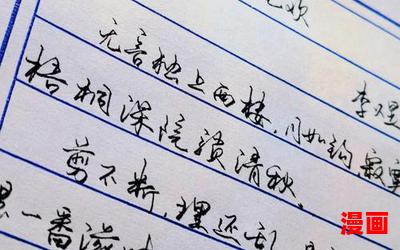 见欢
李煜
无言独上西楼，月如钩寂寞
梧桐深院锁清秋。
剪不断，理还乱，
一番滋味
漫画